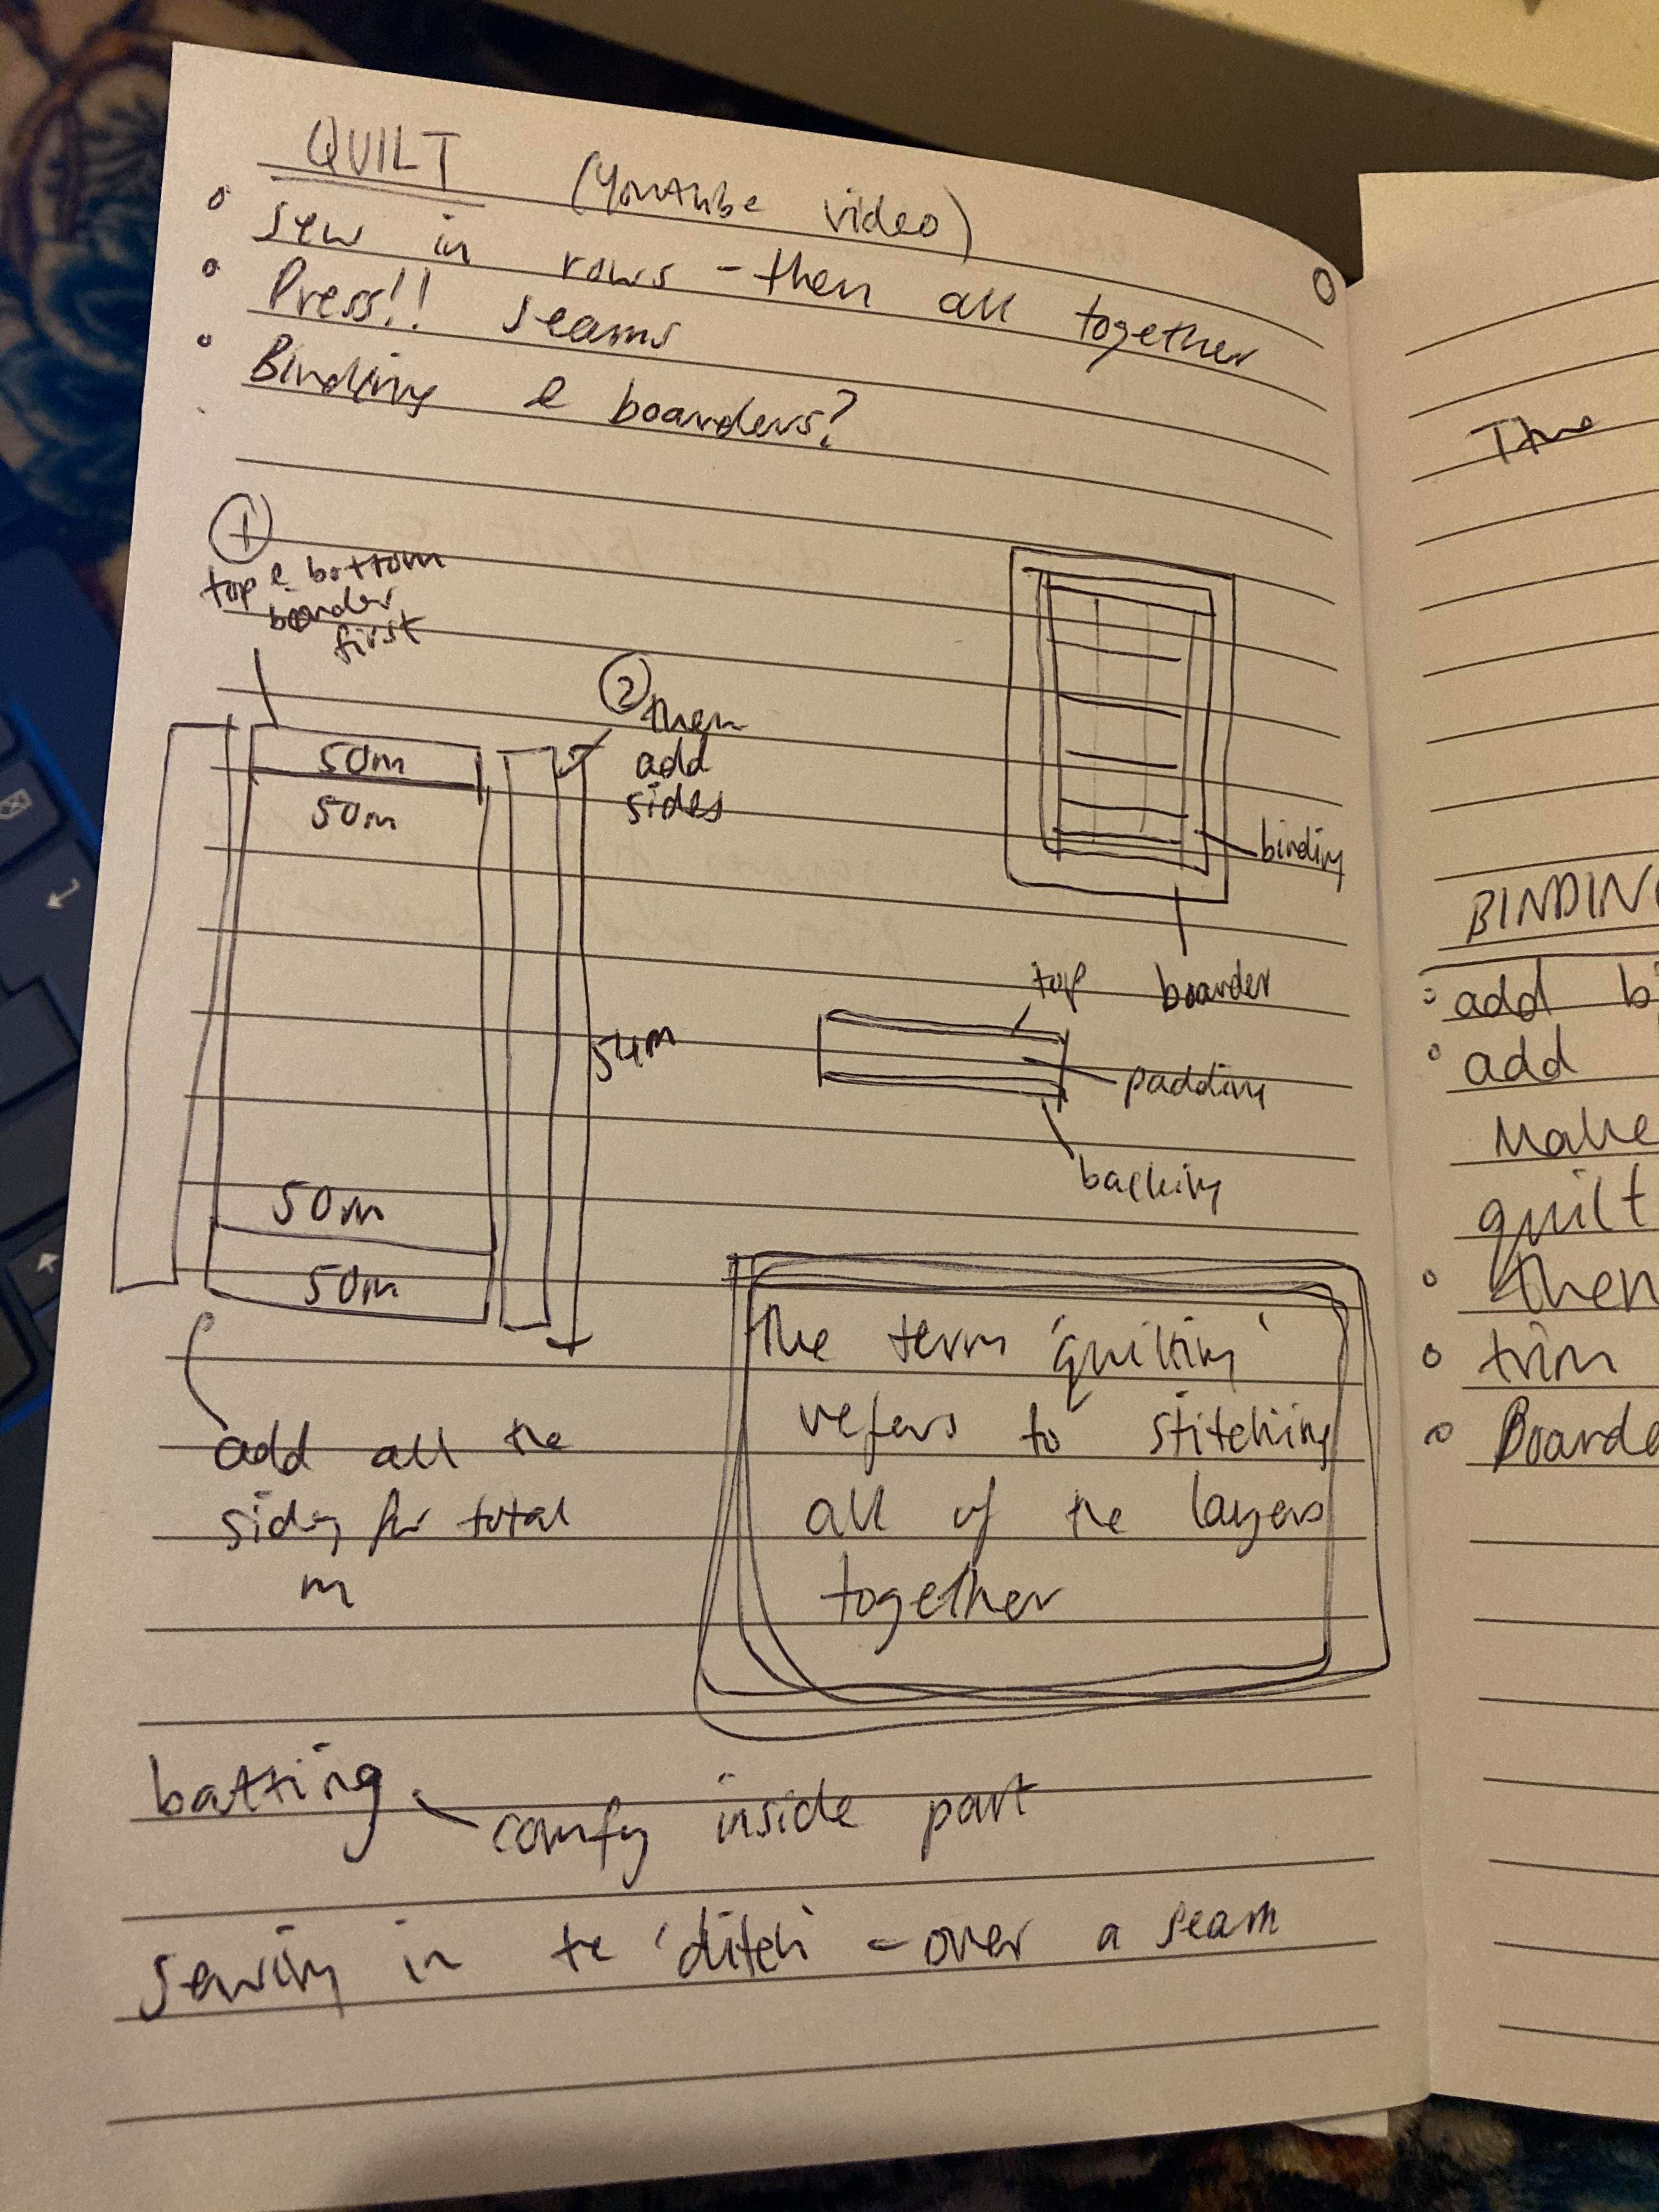 QUILT (Youtube video)
sew in rows - then all together
Press!! seams
Binding & boarders?
1
top & bottom
boarder
first
2 then
add
sides
50m
50m
54m
50m
50m
add all the
sides for total
m
binding
boarder
top
padding
backing
The term 'quilting'
refers to stitching
all of the layers
together
batting - comfy inside part
sewing in te 'ditch' - over a seam
BINDING
add bi
add
Make
quilt
then
trim
Boarde